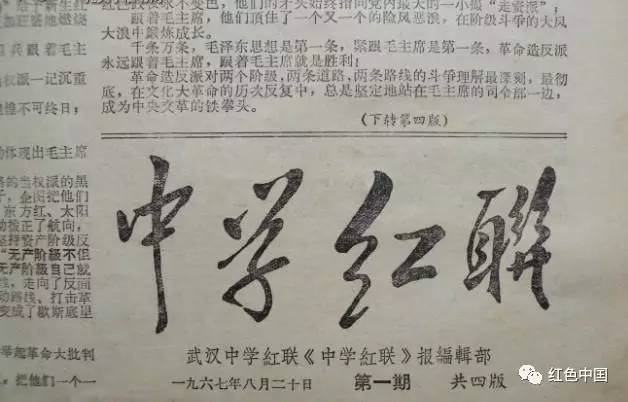 不变色，他们的矛头始终指向党内最大的一小撮“走资派”；
跟着毛主席，他们頂住了一个又一个的险风恶浪，在阶级斗争的大风
大浪中鍛炼成长。
千条万条，毛泽东思想是第一条，緊跟毛主席是第一条，革命造反派
永远跟着毛主席，跟着毛主席就是胜利！
革命造反派对两个阶级，两条道路，两条路线的斗争理解最深刻，最彻
底，在文化大革命的历次反复中，总是坚定地站在毛主席的司令部一边，
成为中央文革的铁拳头。
（下转第四版）
兵跟着毛主
权派一记沉重
惶不可终日；
体现出毛主席
的当权派的黑
，企图把他们
东方红、太阳
拨正了航向，
坚持资产阶级反
“无产阶級不但
无产阶級自己就
线，走向了反面
动路线、打击革
变成了歇斯底里
举起革命大批判
，把他们一个一
中学红聯
武汉中学紅联《中学紅联》报編輯部
一九六七年八月二十日 第一期 共四版
红色中国